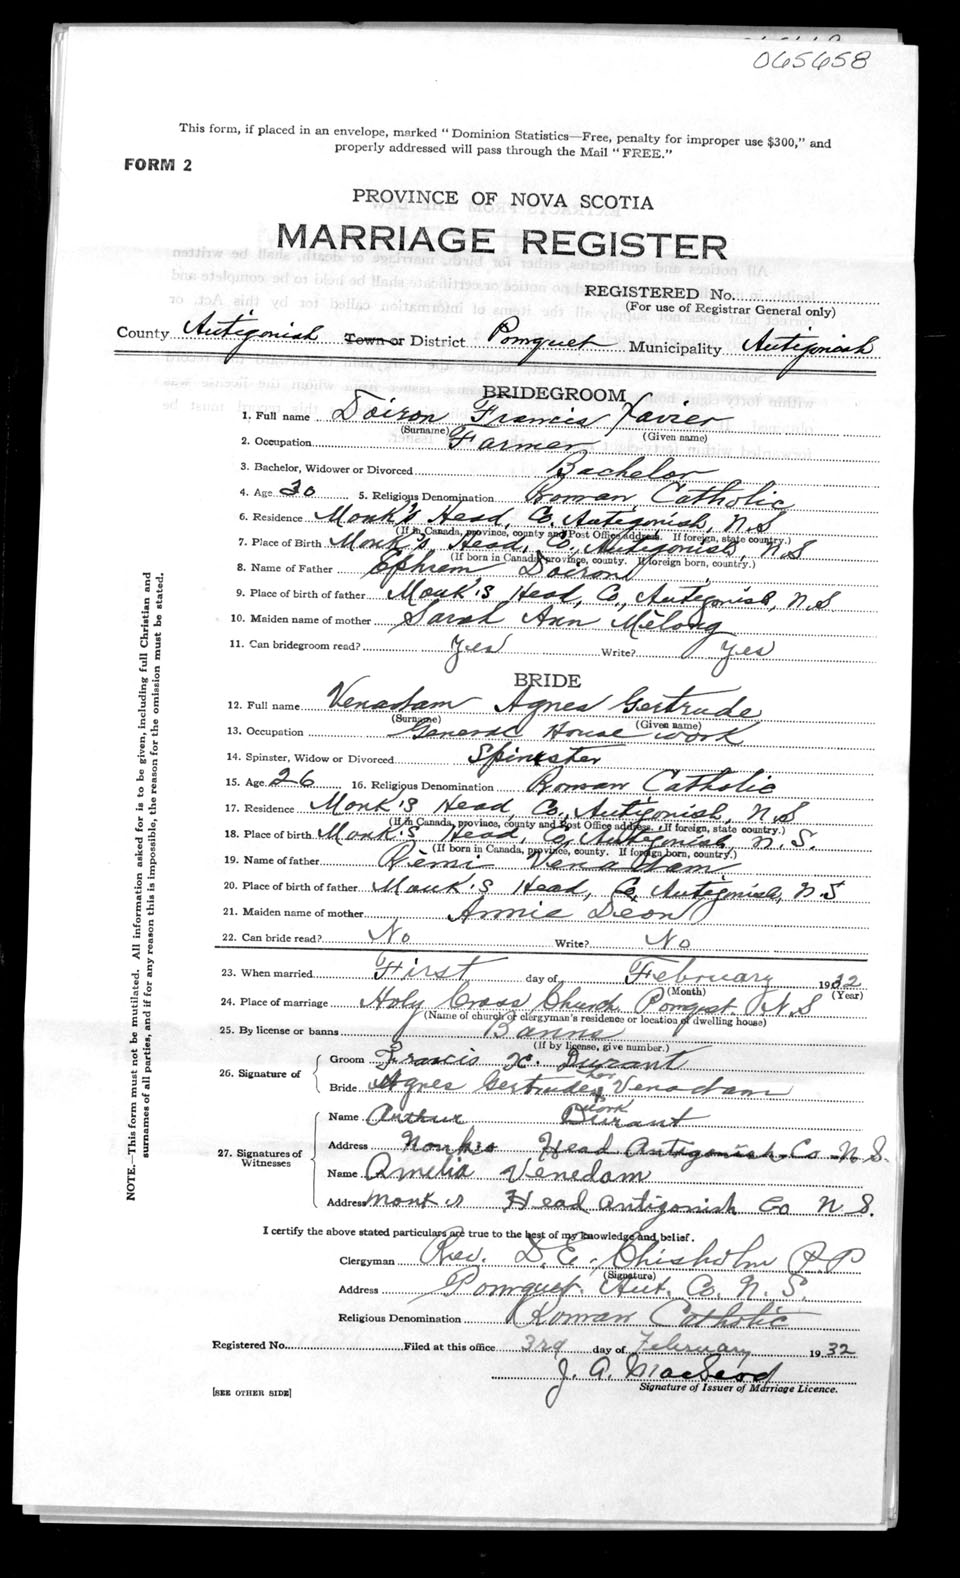 065658
This form, if placed in an envelope, marked "Dominion Statistics—Free, penalty for improper use $300," and
properly addressed will pass through the Mail "FREE."
FORM 2
PROVINCE OF NOVA SCOTIA
MARRIAGE REGISTER
REGISTERED No.
(For use of Registrar General only)
County Antigonish Town or District Pomquet Municipality Antigonish
BRIDEGROOM
1. Full name Doiron Francis Xavier
(Surname) (Given name)
2. Occupation Farmer
3. Bachelor, Widower or Divorced Bachelor
4. Age 30 5. Religious Denomination Roman Catholic
6. Residence Monk's Head, Co. Antigonish, N.S
(If in Canada, province, county and Post Office address. If foreign, state country.)
7. Place of Birth Monk's Head, Co, Antigonish, N.S
(If born in Canada, province, county. If foreign born, country.)
8. Name of Father Ephrem Doiron
9. Place of birth of father Monk's Head, Co., Antigonish, N.S
10. Maiden name of mother Sarah Ann Melong
11. Can bridegroom read? Yes Write? Yes
BRIDE
12. Full name Venadam Agnes Gertrude
(Surname) (Given name)
13. Occupation General House work
14. Spinster, Widow or Divorced Spinster
15. Age 26 16. Religious Denomination Roman Catholic
17. Residence Monk's Head, Co, Antigonish, N.S
(If in Canada, province, county and Post Office address. If foreign, state country.)
18. Place of birth Monk's Head, Co, Antigonish, N.S.
(If born in Canada, province, county. If foreign born, country.)
19. Name of father Rèmi Venadam
20. Place of birth of father Monk's Head, Co, Antigonish, N.S
21. Maiden name of mother Annie Deon
22. Can bride read? No Write? No
23. When married First day of February 1932
(Month) (Year)
24. Place of marriage Holy Cross Church Pomqt. N.S
(Name of church or clergyman's residence or location of dwelling house)
25. By license or banns Banns
(If by license, give number.)
26. Signature of Groom Francis X. Durant
her
Bride Agnes Gertrude x Venadam
mark
27. Signatures of Witnesses
Name Arthur Durant
Address Monks Head Antigonish Co N.S.
Name Amelia Venedam
Address Monk s Head Antigonish Co N.S.
I certify the above stated particulars are true to the best of my knowledge and belief.
Clergyman Rev. D. E. Chisholm P.P
(Signature)
Address Pomquet. Ant. Co. N.S.
Religious Denomination Roman Catholic
Registered No. Filed at this office 3rd day of February 1932
J. A. MacLeod
Signature of Issuer of Marriage Licence.
[SEE OTHER SIDE]
NOTE.—This form must not be mutilated. All information asked for is to be given, including full Christian and
surnames of all parties, and if for any reason this is impossible, the reason for the omission must be stated.